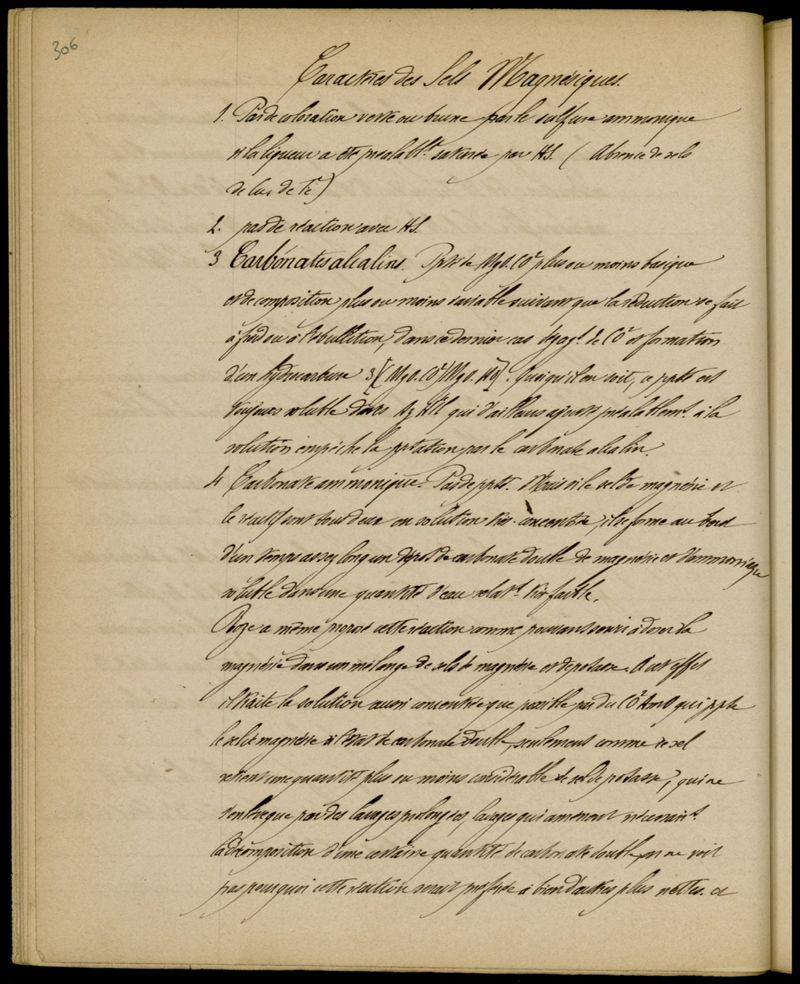 306
Caractères des Sels Magnésiques.
1. Pas de coloration verte ou brune par le sulfure ammonique
si la liqueur a été préalablt. saturée par HS. (Absence de sels
de de Fe)
2. pas de réaction avec HS.
3 Carbonates alcalins. Ppté de MgO.CO² plus ou moins basique
et de composition plus ou moins variable suivant que la réaction se fait
à froid ou à l'ébullition, dans ce dernier cas dégagt. de CO² et formation
d'un hydrocarbure 3(MgO.CO²)(MgO.HO). Quoiqu'il en soit, ce ppté est
toujours soluble dans qui d'ailleurs ajouté préalablemt. à la
solution empêche la pptation par le carbonate alcalin.
4 Carbonate ammonique. Pas de ppté. Mais si le sel de magnésie et
le réactif sont tous deux en solution très concentrée, il se forme au bout
d'un temps assez long un dépôt de carbonate double de magnésie et d'ammoniaque
soluble dans une quantité d'eau relatt. très faible.
Roze a même proposé cette réaction comme pouvant servir à doser la
magnésie dans un mélange de sels de magnésie et de potasse. A cet effet
il traite la solution aussi concentrée que possible par du CO² AmO qui ppte
le sel de magnésie à l'état de carbonate double, seulement comme ce sel
retient une quantité plus ou moins considérable de sel de potasse, qui ne
s'enlève que par des lavages prolongés, lavages qui amènent nécessairt.
la décomposition d'une certaine quantité de carbonate double, on ne voit
pas pourquoi cette réaction serait préférée à bien d'autres plus nettes. et